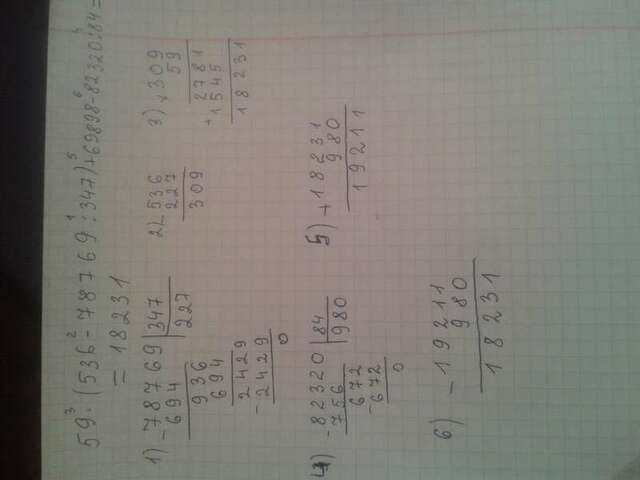 59·(536-78769:347)+69898-82320:84=
3 2 1 5 6 4
= 18231
1) -78769 | 347
694 227
936
694
-2429
2429
0
2) -536
227
309
3) ×309
59
2781
+1545
18231
4) -82320 | 84
756 980
-672
672
0
5) +18231
980
19211
6) -19211
980
18231